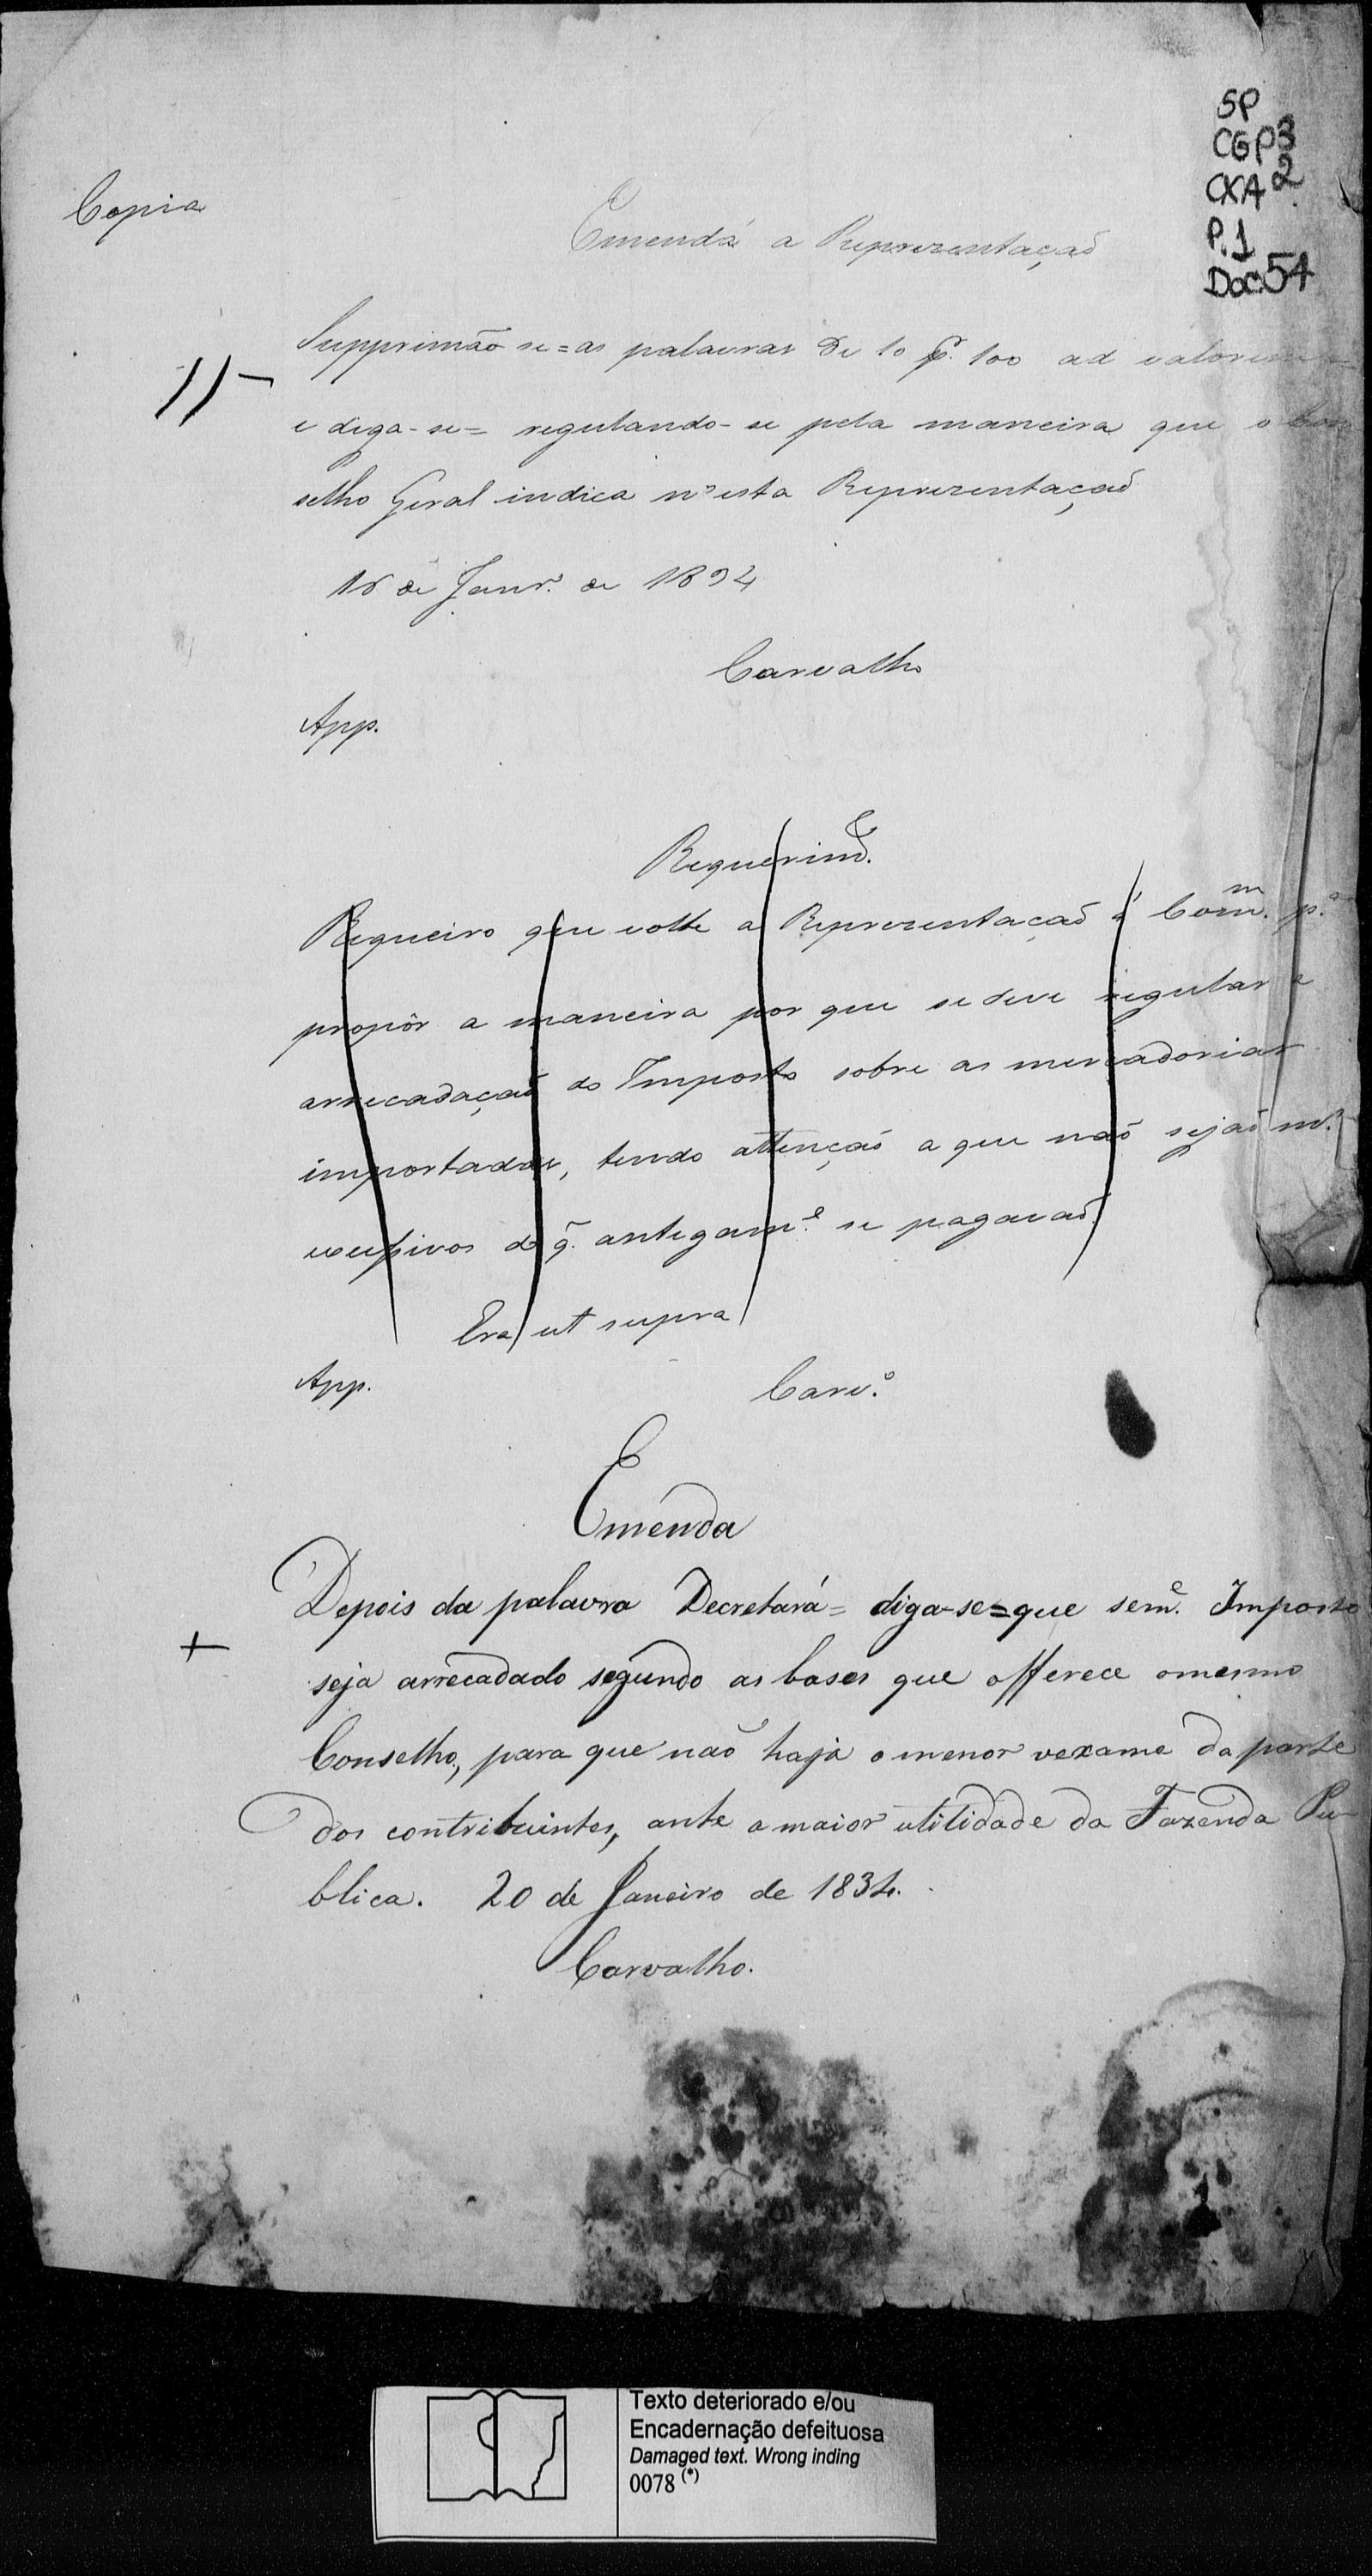 SP
CGP3
CXA 2
P.1
Doc.54
Copia
Emenda á Reprezentaçaõ
Supprimão se = as palavras de 10 p. 100 ad valorem
e diga-se = regulando-se pela maneira que o Con
selho Geral indica n'esta Reprezentaçaõ
16 de Janr.º de 1834
Carvalho
App.
Requerim.e
Requeiro que volte a Reprezentaçaõ á Com.m p.a
propôr a maneira por que se deve regular a
arrecadaçaõ do Imposto sobre as mercadorias
importadas, tendo attençaõ a que naõ sejaõ m.s
excessivos do q̃ antigam.e se pagavaõ.
Era ut supra
App.
Carv.º
Emenda
Depois da palavra Decretará = diga-se = que sem.e Imposto
seja arrecadado segundo as bases que offerece o mesmo
Conselho, para que naõ haja o menor vexame da parte
dos contribuintes, ante a maior utilidade da Fazenda Pu-
blica. 20 de Janeiro de 1834.
Carvalho.
Texto deteriorado e/ou
Encadernação defeituosa
Damaged text. Wrong inding
0078 (*)